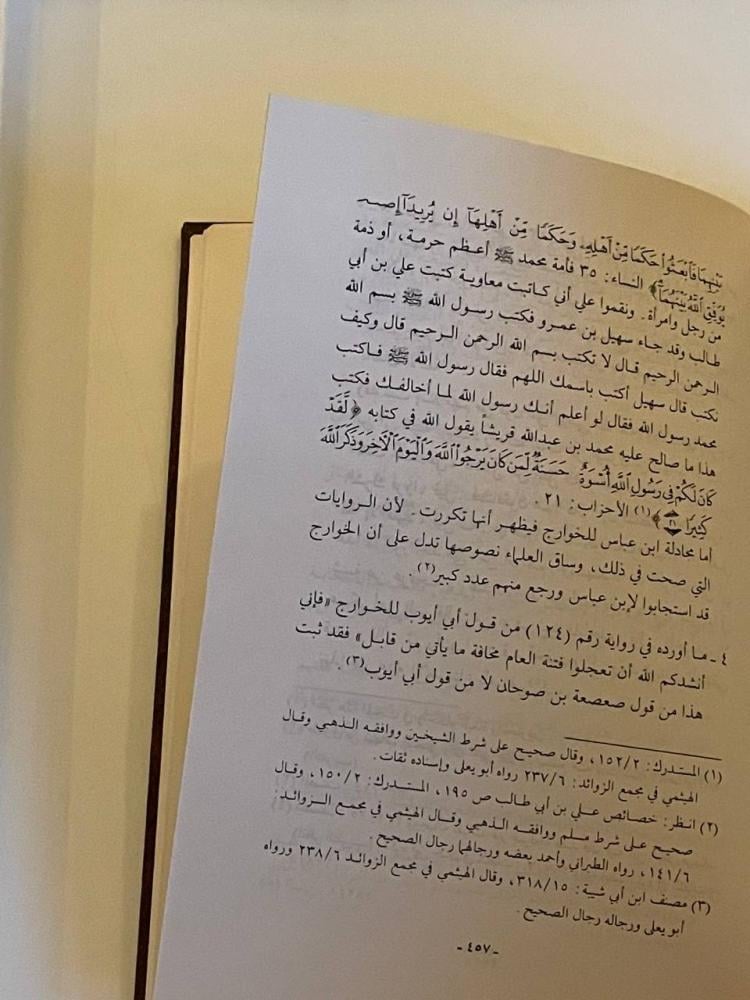 بَيْنِهِمَا فَابْعَثُوا حَكَمًا مِّنْ أَهْلِهِ وَحَكَمًا مِّنْ أَهْلِهَا إِن يُرِيدَا إِصـ
يُوَفِّقِ اللَّهُ بَيْنَهُمَا﴾ النساء: ٣٥ فأمة محمد ﷺ أعظم حرمة، أو ذمة
من رجل وامرأة. ونقموا علي أني كاتبت معاوية كتبت علي بن أبي
طالب وقد جاء سهيل بن عمرو فكتب رسول الله ﷺ بسم الله
الرحمن الرحيم قال لا تكتب بسم الله الرحمن الرحيم قال وكيف
نكتب قال سهيل أكتب باسمك اللهم فقال رسول الله ﷺ فاكتب
محمد رسول الله فقال لو أعلم أنك رسول الله لما أخالفك فكتب
هذا ما صالح عليه محمد بن عبدالله قريشاً يقول الله في كتابه ﴿لَّقَدْ
كَانَ لَكُمْ فِي رَسُولِ اللَّهِ أُسْوَةٌ حَسَنَةٌ لِّمَن كَانَ يَرْجُوا اللَّهَ وَالْيَوْمَ الْآخِرَ وَذَكَرَ اللَّهَ
كَثِيرًا ٢١﴾(١) الأحزاب: ٢١.
أما مجادلة ابن عباس للخوارج فيظهر أنها تكررت. لأن الروايات
التي صحت في ذلك، وساق العلماء نصوصها تدل على أن الخوارج
قد استجابوا لإبن عباس ورجع منهم عدد كبير(٢).
٤ - ما أورده في رواية رقم (١٢٤) من قول أبي أيوب للخوارج «فإني
أنشدكم الله أن تعجلوا فتنة العام مخافة ما يأتي من قابل» فقد ثبت
هذا من قول صعصعة بن صوحان لا من قول أبي أيوب(٣).
(١) المستدرك: ١٥٢/٢، وقال صحيح على شرط الشيخين ووافقه الذهبي وقال
الهيثمي في مجمع الزوائد: ٢٣٧/٦ رواه أبو يعلى وإسناده ثقات.
(٢) انظر: خصائص علي بن أبي طالب ص ١٩٥، المستدرك: ١٥٠/٢، وقال
صحيح على شرط مسلم ووافقه الذهبي وقال الهيثمي في مجمع الزوائد:
١٤١/٦، رواه الطبراني وأحمد بعضه ورجالهما رجال الصحيح.
(٣) مصنف ابن أبي شيبة: ٣١٨/١٥، وقال الهيثمي في مجمع الزوائد ٢٣٨/٦ ورواه
أبو يعلى ورجاله رجال الصحيح.
- ٤٥٧ -